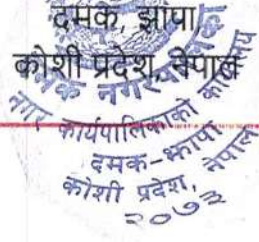 दमक झापा
कोशी प्रदेश, नेपाल
दमक नगरपालिका
नगर कार्यपालिकाको कार्यालय
दमक-झापा
कोशी प्रदेश, नेपाल
२०७३